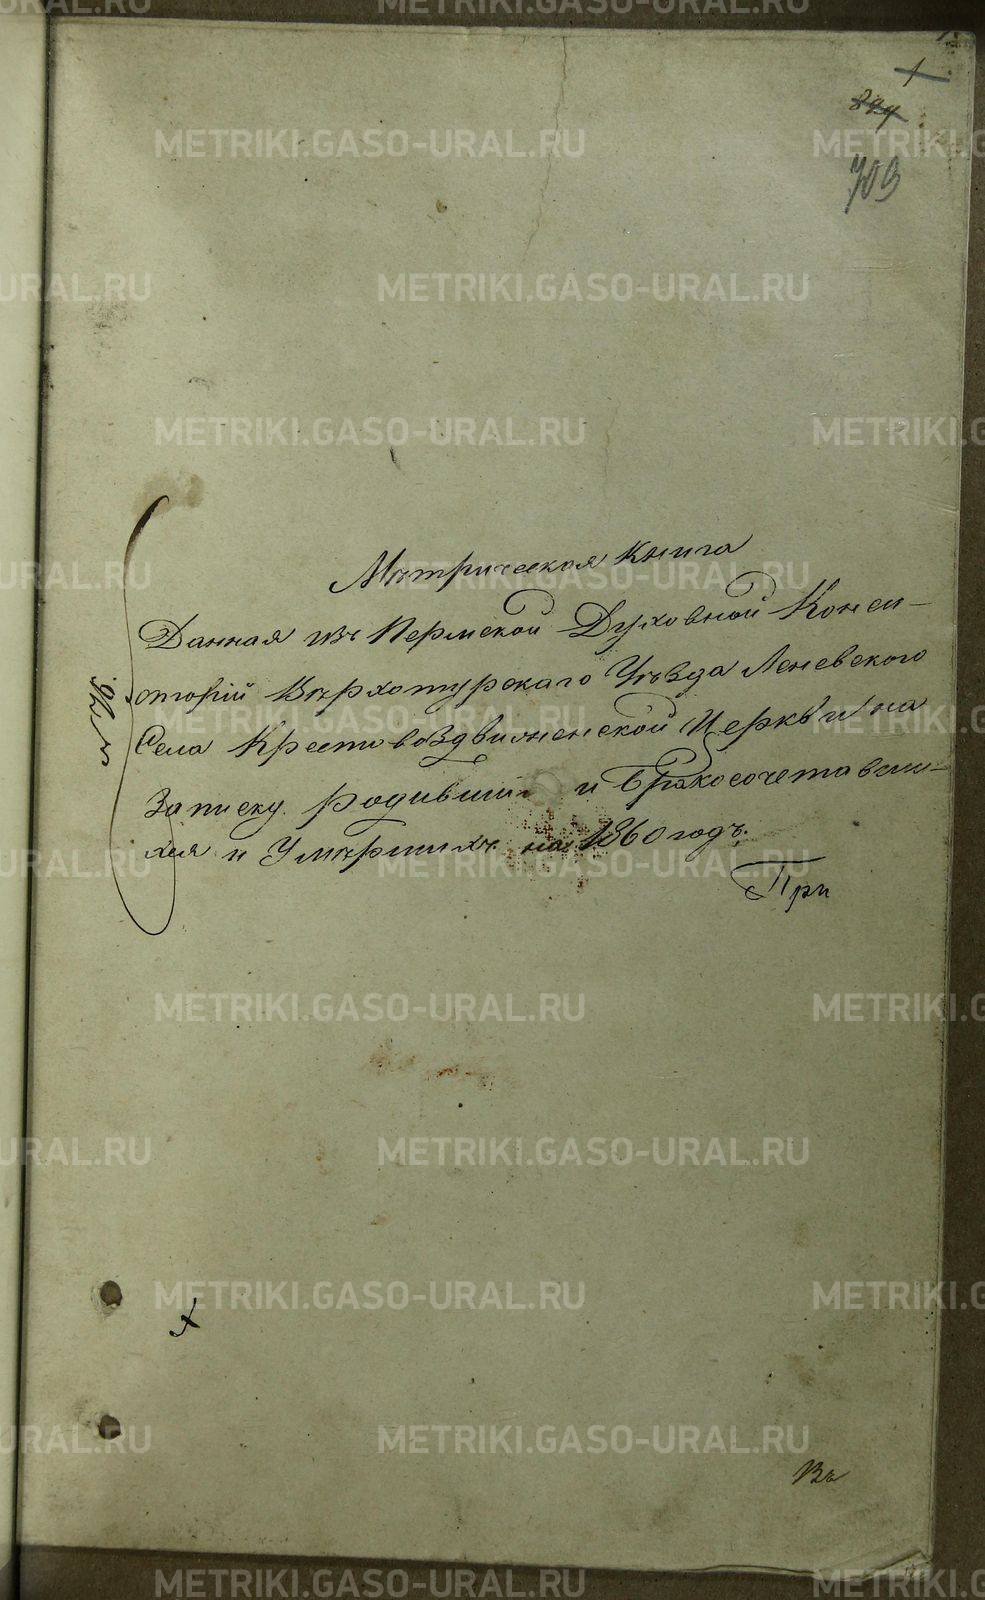 1
824
703
Мѣтрическая Книга
Данная изъ Пермской Духовной Конси-
сторіи Вѣрхотурскаго Уѣзда Леневского
Села Крестовоздвиженской Церкви на
Записку родивши и Бракосочетавши-
хся и Умѣрших на 1860 годъ.
При
Въ
METRIKI.GASO-URAL.RU